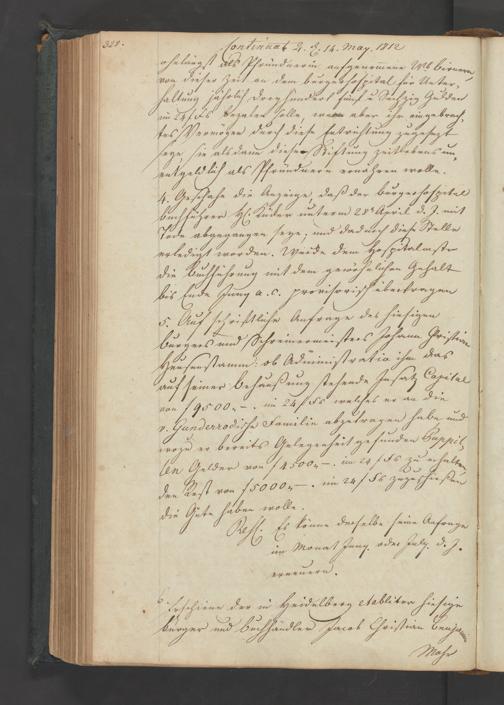 328. Continuat. d. d. 14. May. 1812
als Pfründnerin aufgenommene Wb Birner
von dieser Zeit an dem Bürgerhospital für Unter,
haltung jährlich dreyhundert fünf u Sechzig Gulden
im 24/Fs bezalen solle, wenn aber ihr eingebrach,
tes Vermögen durch diese Entrichtung zugesezt
seye, sie alsdann dieser Stiftung zeitlebens un,
entgeldlich als Pfründnerin ernähren wolle.
4. Geschahe die Anzeige, daß der Bürgerhospital
Buchführer H. unterm 28t April d. J. mit
Tode abgegangen seye, und dadurch diese Stelle
erledigt worden. Wurde dem Hospitalmstr
die Buchführung mit dem gewöhnlichen Gehalt
bis Ende Juny a. c. provisorisch übertragen
5. Auf schriftliche Anfrage des hiesigen
Bürgers und Schreinermeisters Johann Christian
Heusenstamm: ob Administratio ihm das
auf seiner Behaußung stehende Insatz Capital
von f9500,,–. im 24/Fs welches er an die
v. Gunderrodische Familie abzutragen habe und
wozu er bereits Gelegenheit gefunden Puppil,
len Gelder von f4500,,–. im 24/Fs zu erhalten,
den Rest von f5000,,–. im 24/Fs zuzuschießen
die Güte haben wolle.
Resl. Es könne derselbe seine Anfrage
im Monat Juny oder July d. J.
erneuern.
6. Erschiene der in Heidelberg etablirte hiesige
Bürger und Buchhändler Jacob Christian Benjamin
Mohr